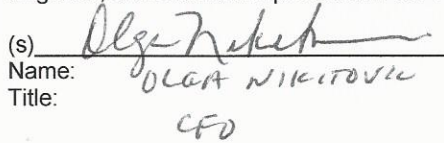 (s) Olga Nikitovic
Name: OLGA NIKITOVIC
Title:
CFO